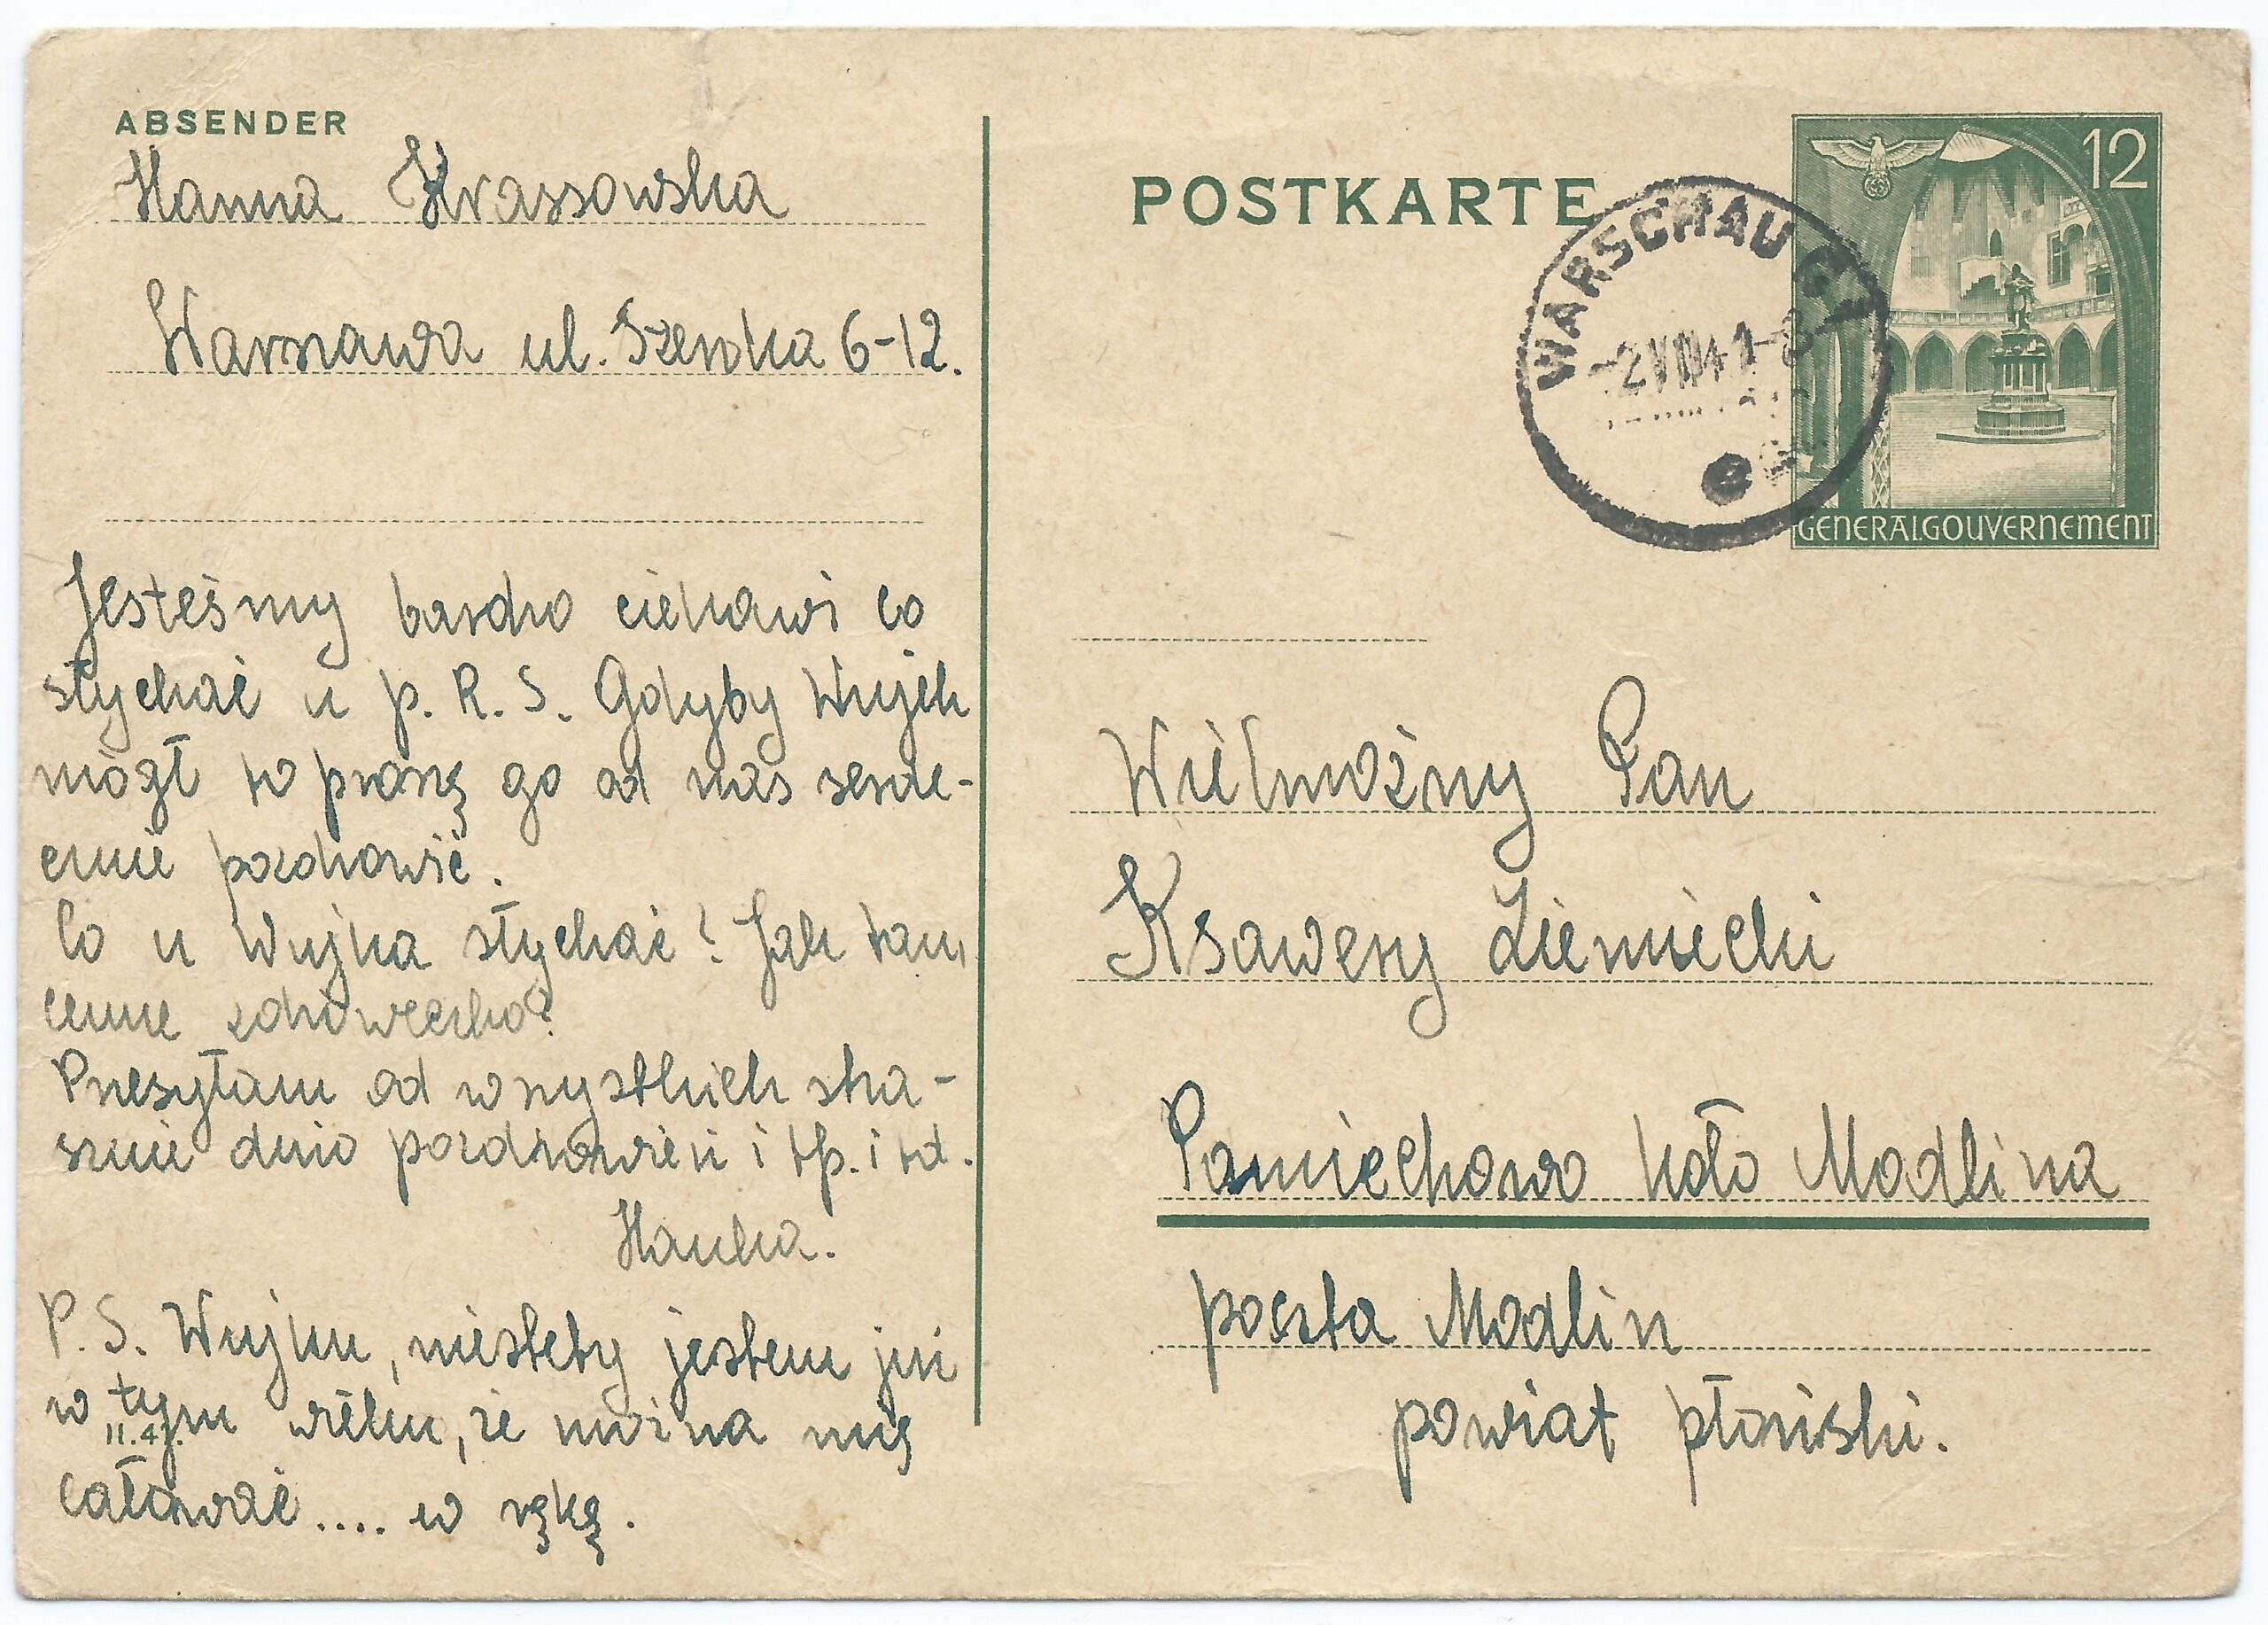 ABSENDER
Hanna Krassowska
Warszawa ul. Szeroka 6-12.
Jesteśmy bardzo ciekawi co
słychać u p. R. S. Gdyby Wujek
mógł to proszę go od nas serde-
cznie pozdrowić.
Co u Wujka słychać? Jak tam
cenne zdróweczko?
Przesyłam od wszystkich stra-
sznie dużo pozdrowień i tp. i td.
Hanka.
P. S. Wujku, niestety jestem już
w tym wieku, że można mię
II.41.
całować.... w rękę.
POSTKARTE
WARSCHAU C1
-2.VIII41-
12
GENERALGOUVERNEMENT
Wielmożny Pan
Ksawery Ziemiecki
Pomiechowo koło Modlina
poczta Modlin
powiat płoński.